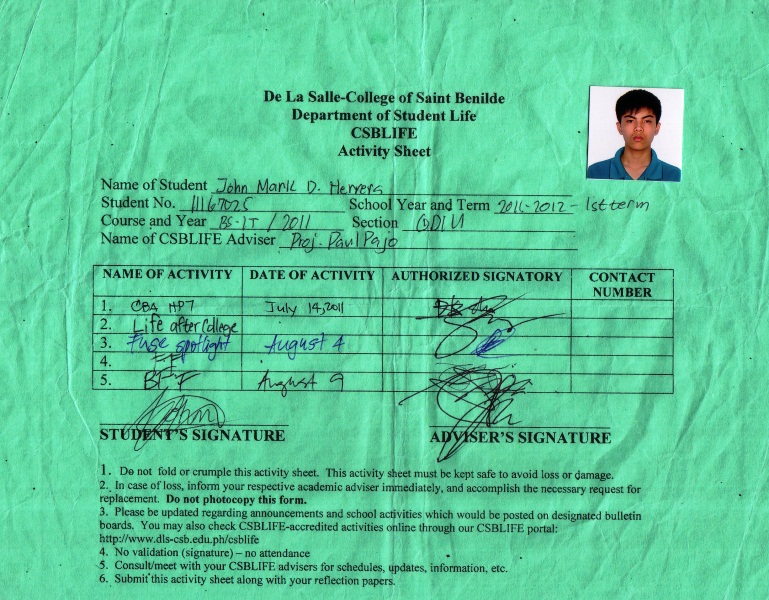 De La Salle-College of Saint Benilde
Department of Student Life
CSBLIFE
Activity Sheet
Name of Student John Mark D. Herrera
Student No. 11167025 School Year and Term 2011-2012 - 1st term
Course and Year BS-IT / 2011 Section
Name of CSBLIFE Adviser Proj. Paul Pajo
NAME OF ACTIVITY DATE OF ACTIVITY AUTHORIZED SIGNATORY CONTACT NUMBER
1. CBA July 14, 2011
2. Life after College
3. Fuse spotlight August 4
4.
5. August 9
STUDENT'S SIGNATURE ADVISER'S SIGNATURE
1. Do not fold or crumple this activity sheet. This activity sheet must be kept safe to avoid loss or damage.
2. In case of loss, inform your respective academic adviser immediately, and accomplish the necessary request for
replacement. Do not photocopy this form.
3. Please be updated regarding announcements and school activities which would be posted on designated bulletin
boards. You may also check CSBLIFE-accredited activities online through our CSBLIFE portal:
http://www.dls-csb.edu.ph/csblife
4. No validation (signature) – no attendance
5. Consult/meet with your CSBLIFE advisers for schedules, updates, information, etc.
6. Submit this activity sheet along with your reflection papers.